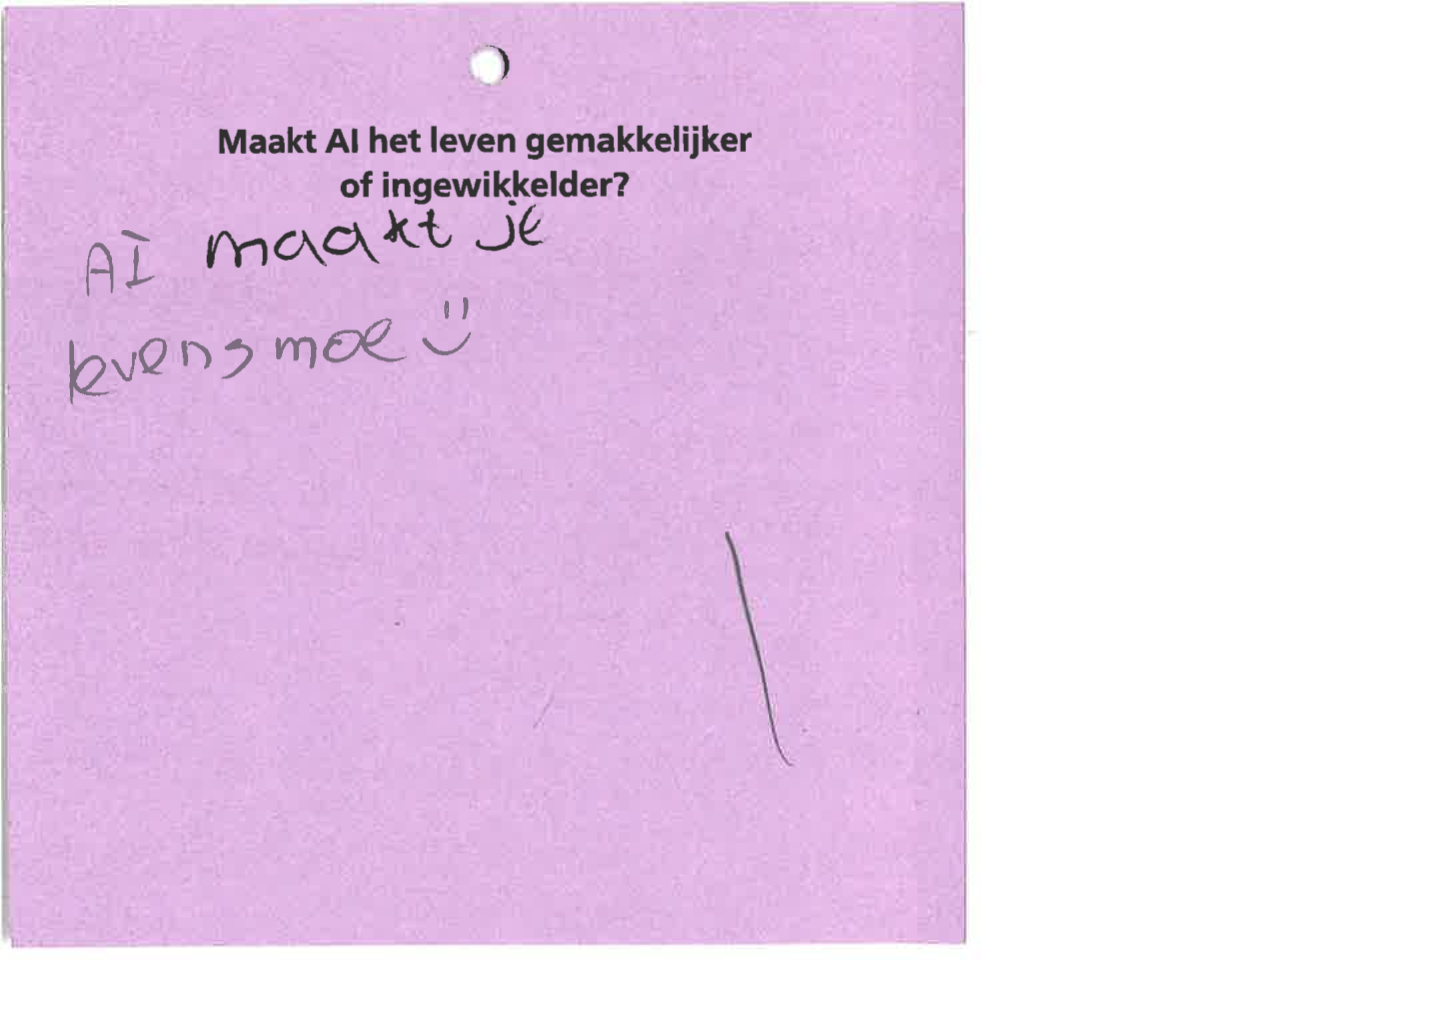 Maakt AI het leven gemakkelijker
of ingewikkelder?
AI maakt je
levensmoe